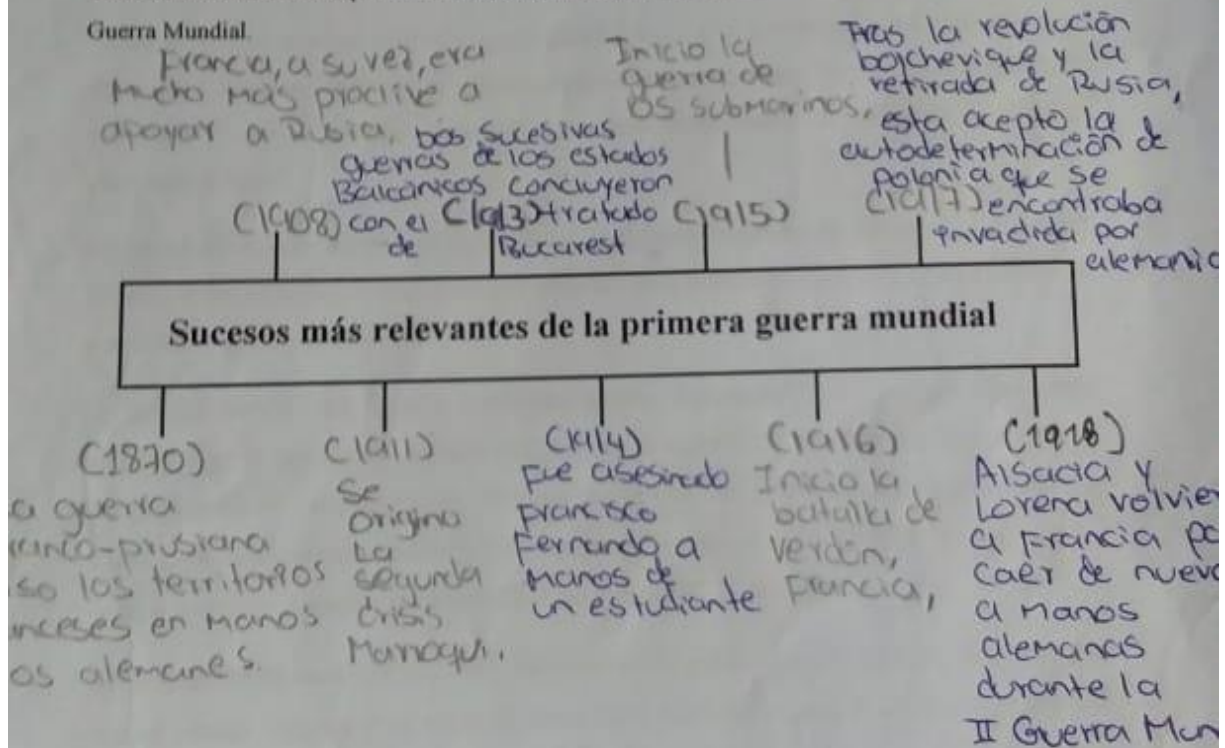 Guerra Mundial.
Francia, a su vez, era
Mucho más proclive a
apoyar a Rusia,
(1908)
Dos sucesivas
guerras de los estados
Balcánicos concluyeron
con el (1913) tratado
de Bucarest
Inicio la
guerra de
os submarinos,
(1915)
Tras la revolución
bolchevique y la
retirada de Rusia,
esta acepto la
autodeterminación de
polonia que se
(1917) encontraba
invadida por
alemania
Sucesos más relevantes de la primera guerra mundial
(1870)
a guerra
ranco-prusiana
so los territorios
nceses en manos
os alemanes.
(1911)
Se
origino
La
segunda
crisis
Marroqui.
(1914)
fue asesinado
Francisco
Fernando a
Manos de
un estudiante
(1916)
Inicio la
batalla de
Verdún,
Francia,
(1918)
Alsacia y
Lorena volvier
a Francia pa
caer de nuevo
a manos
alemanas
durante la
II Guerra Mun